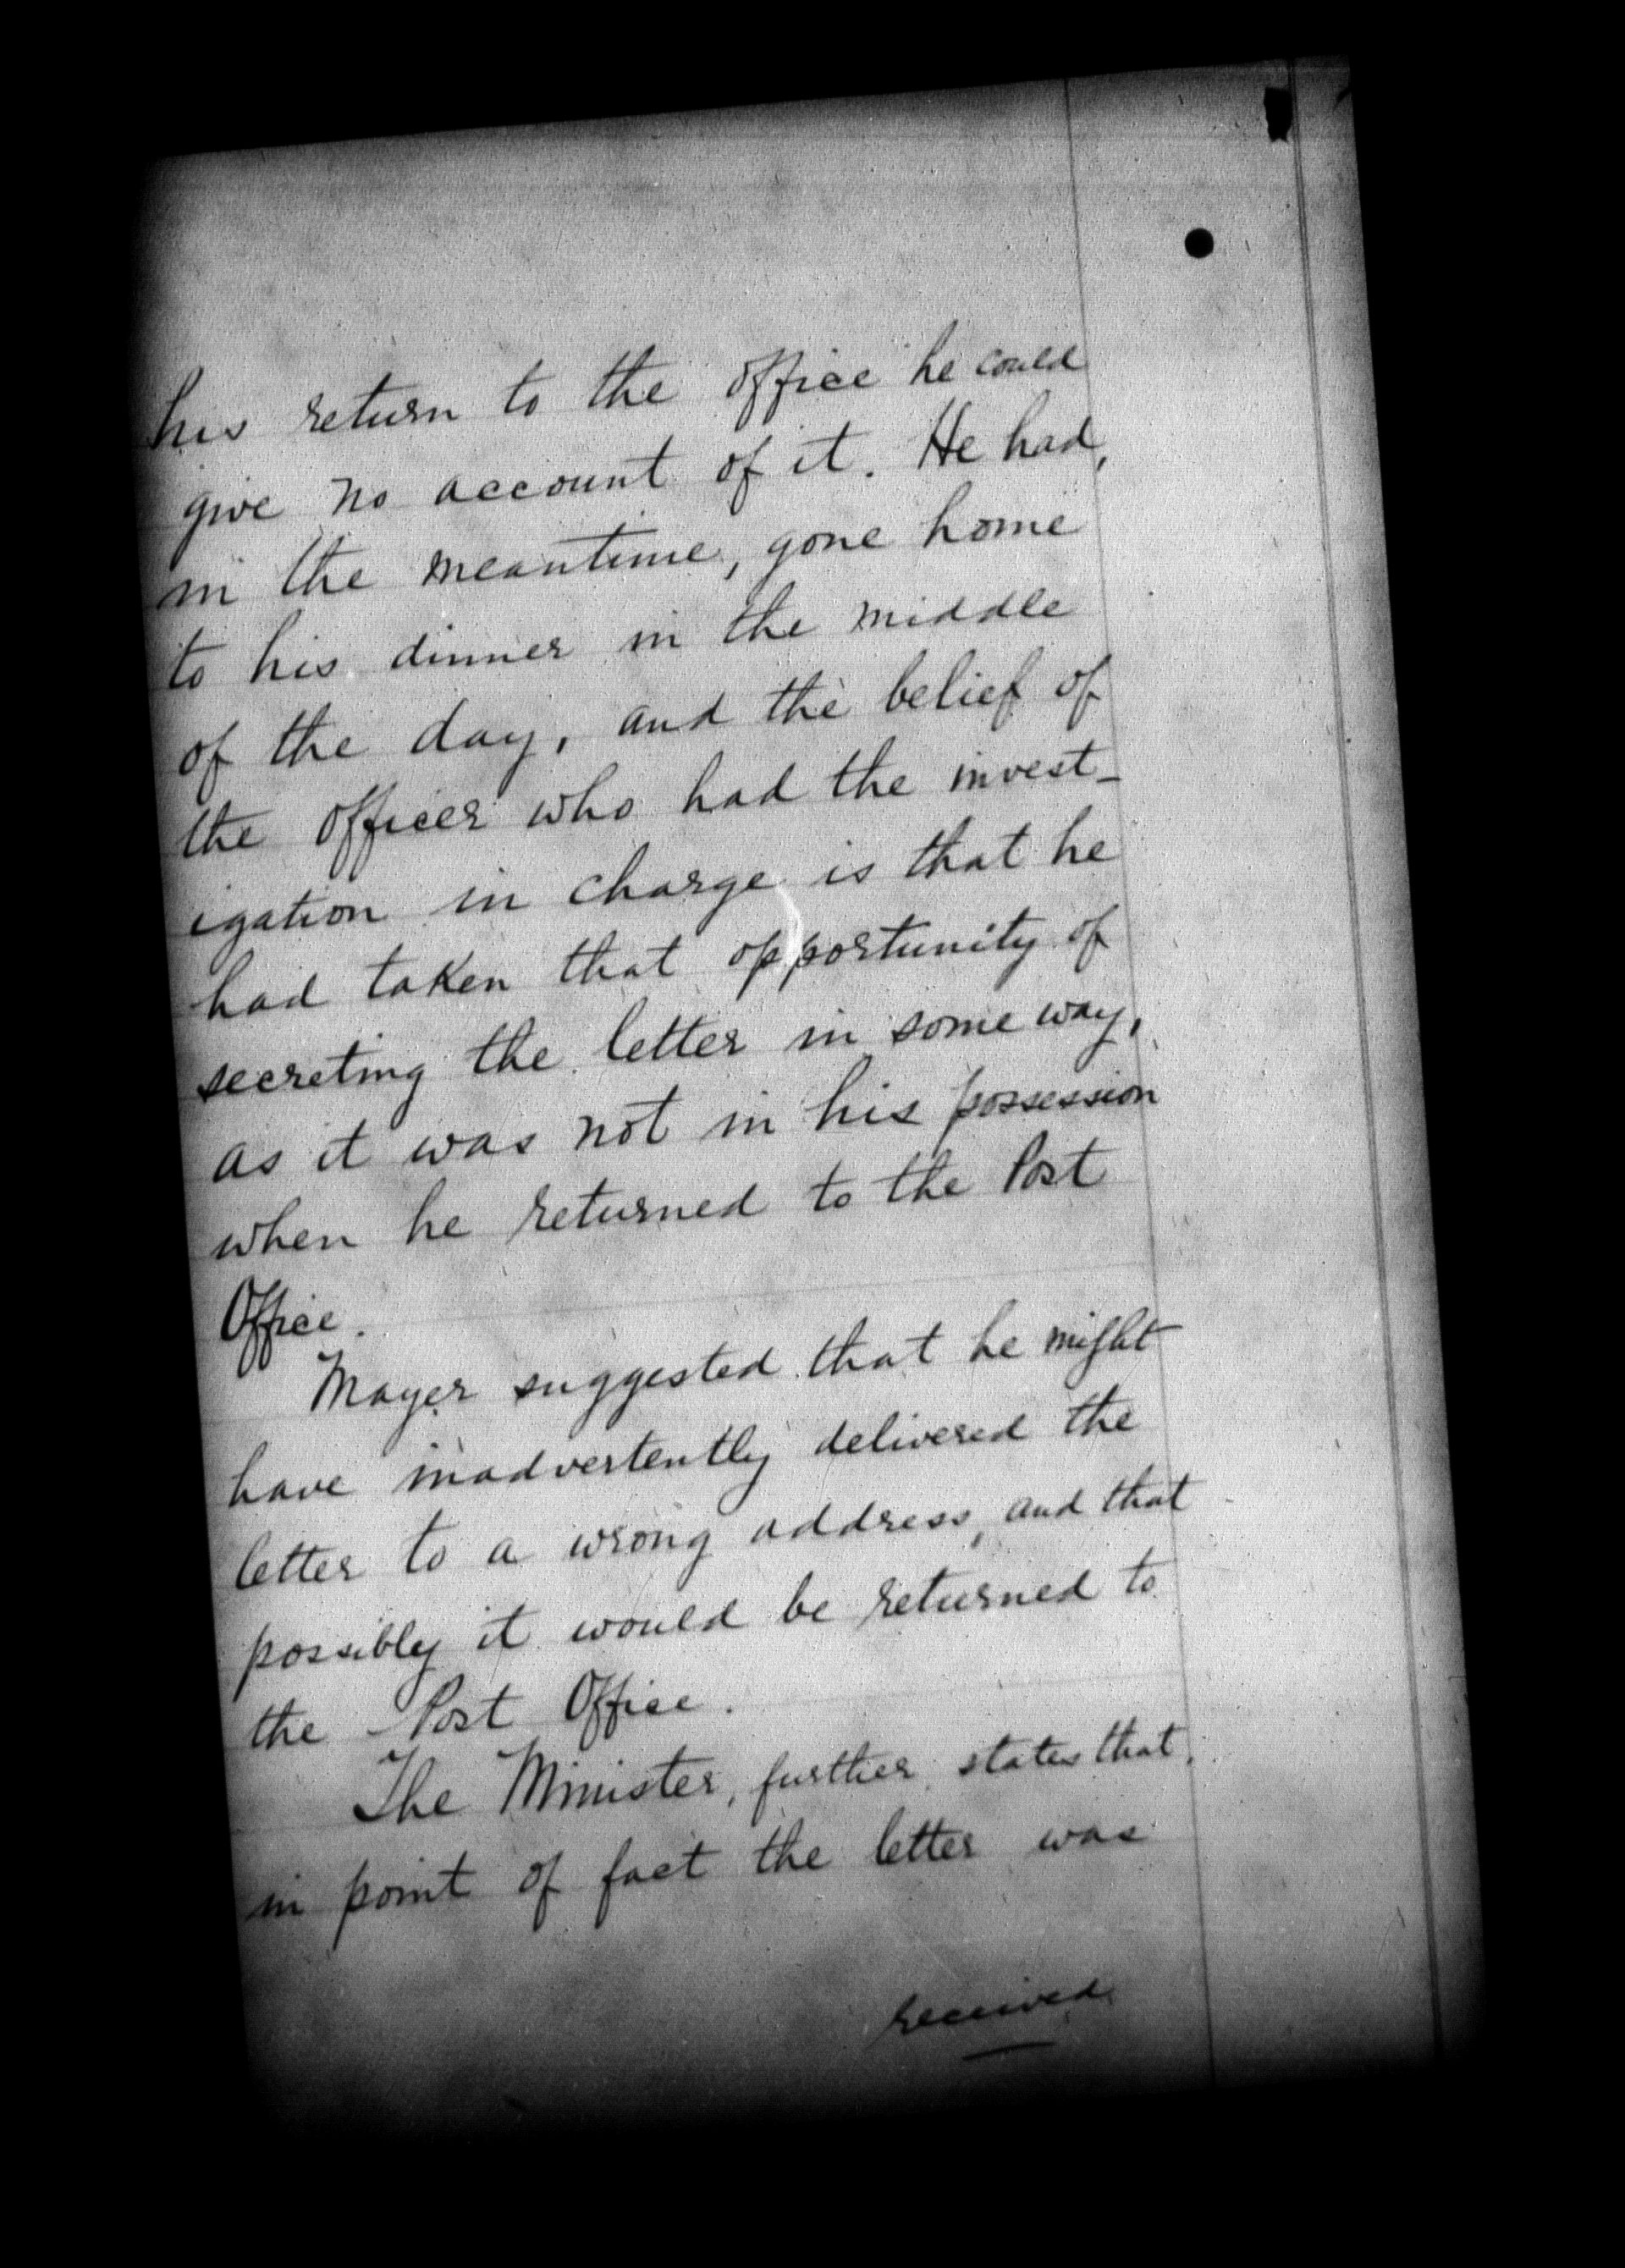 his return to the office he could
give no account of it. He had,
in the meantime, gone home
to his dinner in the middle
of the day, and the belief of
the officer who had the invest-
igation in charge is that he
had taken that opportunity of
secreting the letter in some way,
as it was not in his possession
when he returned to the Post
Office.
Mayer suggested that he might
have inadvertently delivered the
letter to a wrong address, and that
possibly it would be returned to
the Post Office.
The Minister, further, states that,
in point of fact the letter was
received